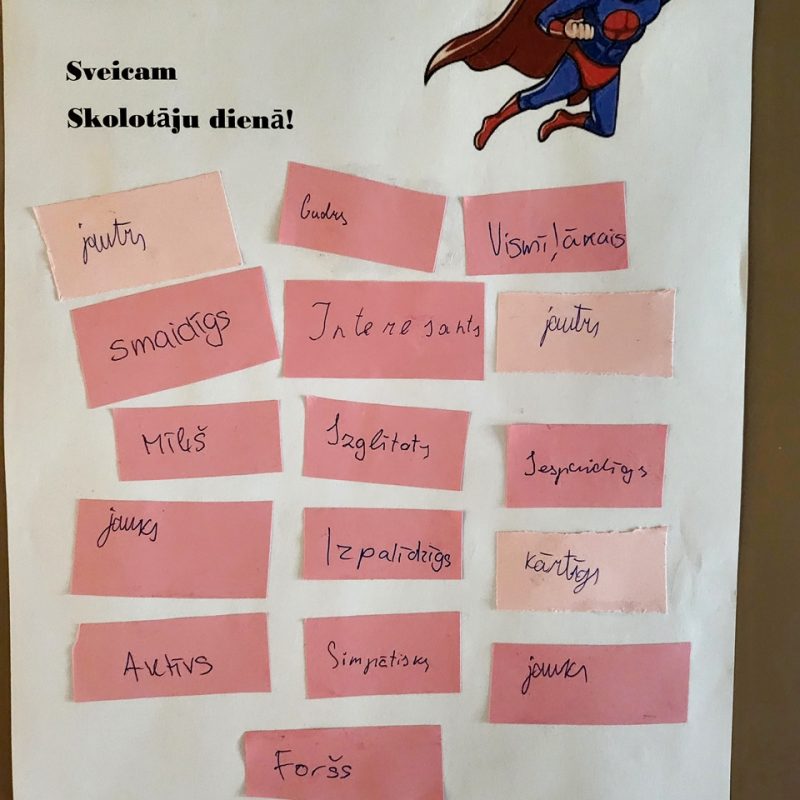 Sveicam
Skolotāju dienā!
jautrs
Gudrs
Vismīļākais
smaidīgs
Interesants
jautrs
Mīļš
Izglītots
Iespaidīgs
jauks
Izpalīdzīgs
kārtīgs
Aktīvs
Simpātisks
jauks
Foršs